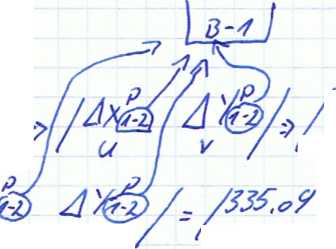 B-1
⇒ | ΔX^P_1-2 u ΔY^P_1-2 v | ⇒ |
P_1-2 ΔY^P_1-2 | = | 335.09